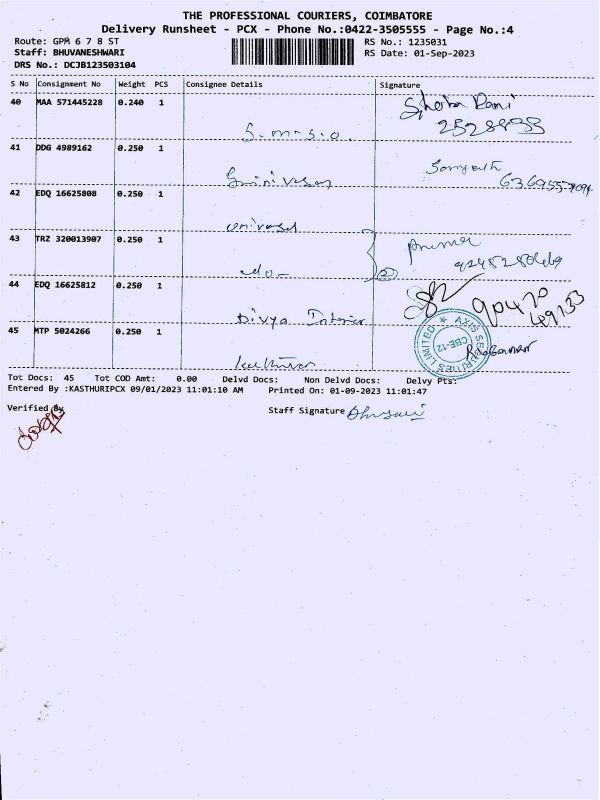 THE PROFESSIONAL COURIERS, COIMBATORE
Delivery Runsheet - PCX - Phone No.:0422-3505555 - Page No.:4
Route: GPM 6 7 8 ST
RS No.: 1235031
Staff: BHUVANESHWARI
RS Date: 01-Sep-2023
DRS No.: DCJB123503104
S No Consignment No Weight PCS Consignee Details Signature
40 MAA 571445228 0.240 1
S.m.s.o.
41 DDG 4989162 0.250 1
Srinivasan
42 EDQ 16625808 0.250 1
universal
43 TRZ 320013907 0.250 1
-do-
2
44 EDQ 16625812 0.250 1
Divya Interior
90470
49733
45 MTP 5024266 0.250 1
AXIS SECURITIES LIMITED
CBE-12
Tot Docs: 45 Tot COD Amt: 0.00 Delvd Docs: Non Delvd Docs: Delvy Pts:
Entered By :KASTHURIPCX 09/01/2023 11:01:10 AM Printed On: 01-09-2023 11:01:47
Verified By
Staff Signature